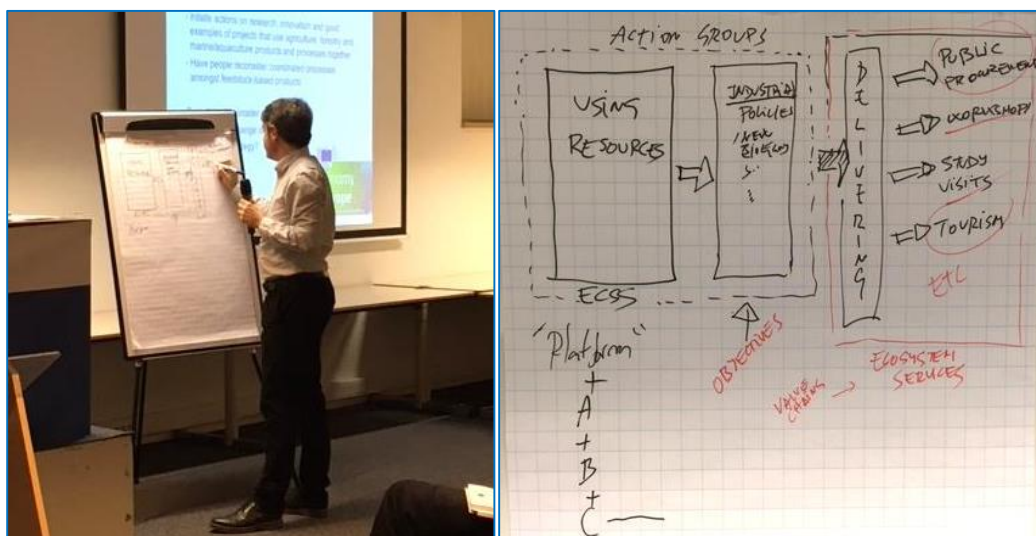 Initiate actions on research, innovation and good
examples of projects that use agriculture, forestry and
marine/aquaculture products and processes together
Have people reconsider coordinated processes
amongst feedstock-based products
ACTION GROUPS
USING
RESOURCES
INDUSTRIAL
POLICIES
DELIVERING
PUBLIC
PROCUREMENT
WORKSHOPS
STUDY
VISITS
TOURISM
ETC
ECOSYSTEM
SERVICES
OBJECTIVES
VALUE
CHAINS
"Platform"
+
A
+
B
+
C